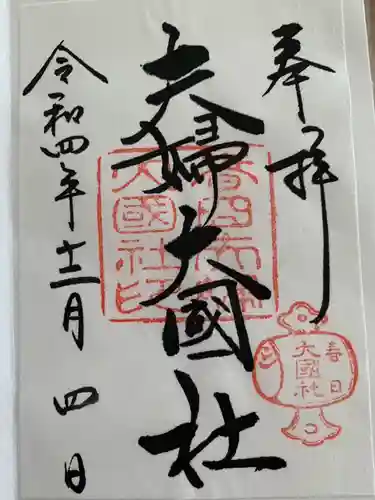 奉拝
夫婦大國社
令和四年十二月四日
春日
大國社